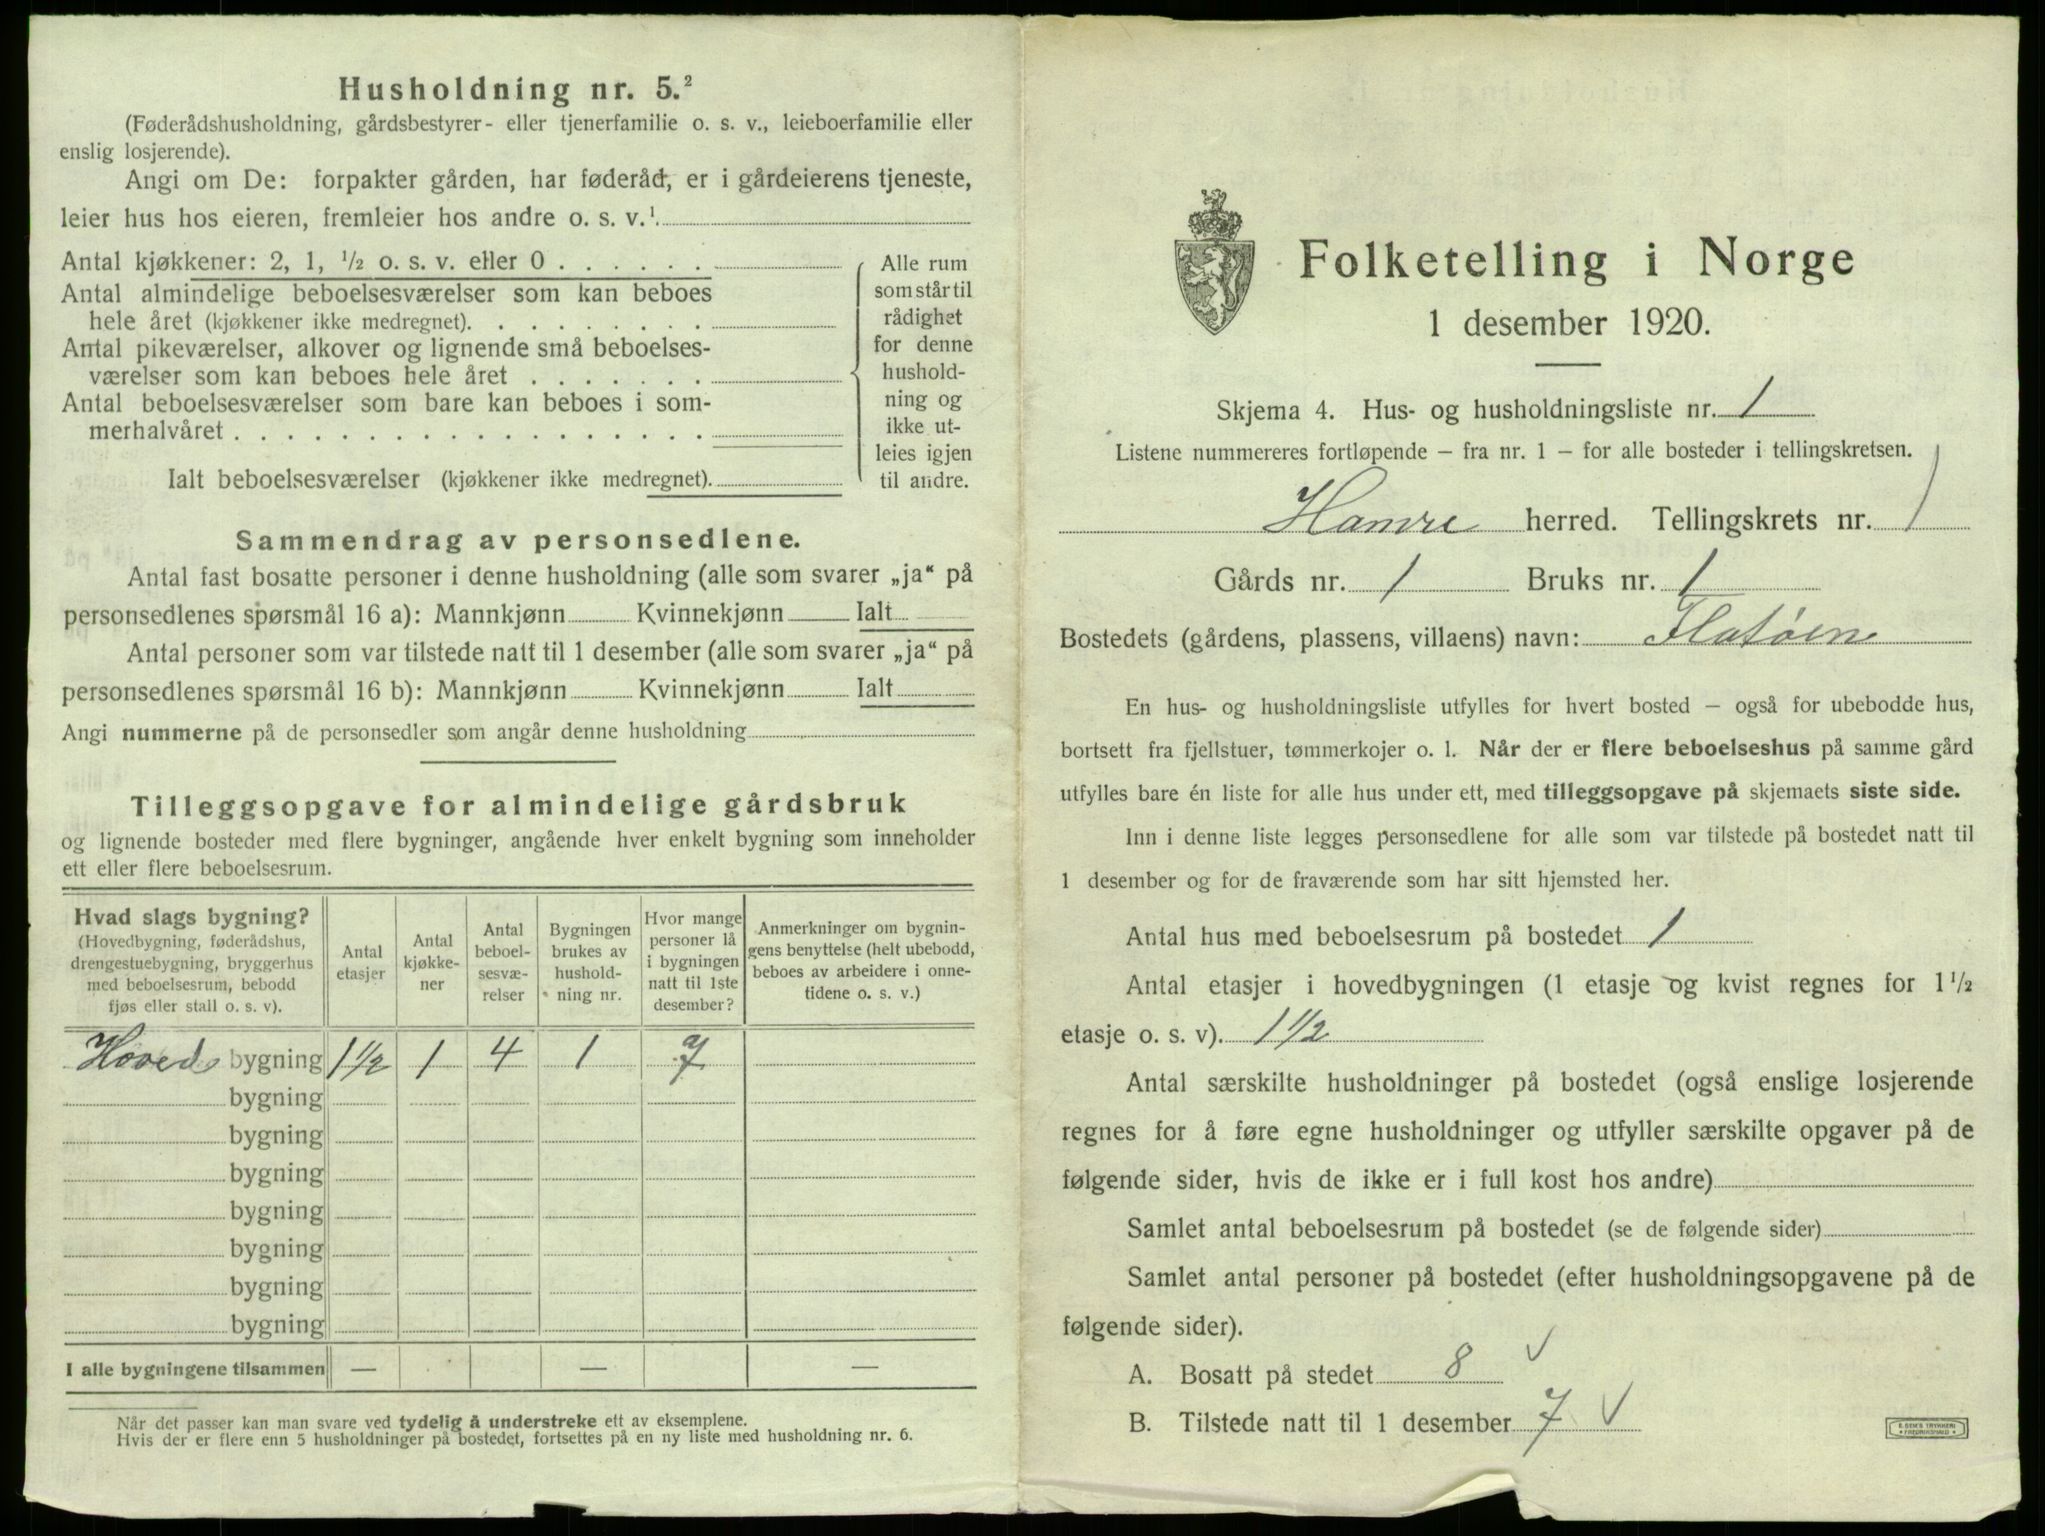 Husholdning nr. 5.²
(Føderådshusholdning, gårdsbestyrer- eller tjenerfamilie o. s. v., leieboerfamilie eller
enslig losjerende).
Angi om De: forpakter gården, har føderåd, er i gårdeierens tjeneste,
leier hus hos eieren, fremleier hos andre o. s. v.¹
Antal kjøkkener: 2, 1, ½ o. s. v. eller 0 . . . . . .
Antal almindelige beboelsesværelser som kan beboes
hele året (kjøkkener ikke medregnet). . . . . . . . .
Antal pikeværelser, alkover og lignende små beboelses-
værelser som kan beboes hele året . . . . . . .
Antal beboelsesværelser som bare kan beboes i som-
merhalvåret . . . . . . . . . . . . . . . . . .
Ialt beboelsesværelser (kjøkkener ikke medregnet).
Alle rum
som står til
rådighet
for denne
hushold-
ning og
ikke ut-
leies igjen
til andre.
Sammendrag av personsedlene.
Antal fast bosatte personer i denne husholdning (alle som svarer „ja“ på
personsedlenes spørsmål 16 a): Mannkjønn Kvinnekjønn Ialt
Antal personer som var tilstede natt til 1 desember (alle som svarer „ja“ på
personsedlenes spørsmål 16 b): Mannkjønn Kvinnekjønn Ialt
Angi nummerne på de personsedler som angår denne husholdning
Tilleggsopgave for almindelige gårdsbruk
og lignende bosteder med flere bygninger, angående hver enkelt bygning som inneholder
ett eller flere beboelsesrum.
Hvad slags bygning?
(Hovedbygning, føderådshus,
drengestuebygning, bryggerhus
med beboelsesrum, bebodd
fjøs eller stall o. s. v).
Antal
etasjer
Antal
kjøkke-
ner
Antal
beboel-
sesvæ-
relser
Bygningen
brukes av
hushold-
ning nr.
Hvor mange
personer lå
i bygningen
natt til 1ste
desember?
Anmerkninger om bygnin-
gens benyttelse (helt ubebodd,
beboes av arbeidere i onne-
tidene o. s. v.)
Hoved bygning 1½ 1 4 1 7
bygning
bygning
bygning
bygning
bygning
bygning
bygning
I alle bygningene tilsammen — — —
Når det passer kan man svare ved tydelig å understreke ett av eksemplene.
Hvis der er flere enn 5 husholdninger på bostedet, fortsettes på en ny liste med husholdning nr. 6.
Folketelling i Norge
1 desember 1920.
Skjema 4. Hus- og husholdningsliste nr. 1
Listene nummereres fortløpende – fra nr. 1 – for alle bosteder i tellingskretsen.
Hamre herred. Tellingskrets nr. 1
Gårds nr. 1 Bruks nr. 1
Bostedets (gårdens, plassens, villaens) navn: Flatøen
En hus- og husholdningsliste utfylles for hvert bosted – også for ubebodde hus,
bortsett fra fjellstuer, tømmerkojer o. l. Når der er flere beboelseshus på samme gård
utfylles bare én liste for alle hus under ett, med tilleggsopgave på skjemaets siste side.
Inn i denne liste legges personsedlene for alle som var tilstede på bostedet natt til
1 desember og for de fraværende som har sitt hjemsted her.
Antal hus med beboelsesrum på bostedet 1
Antal etasjer i hovedbygningen (1 etasje og kvist regnes for 1½
etasje o. s. v). 1½
Antal særskilte husholdninger på bostedet (også enslige losjerende
regnes for å føre egne husholdninger og utfyller særskilte opgaver på de
følgende sider, hvis de ikke er i full kost hos andre)
Samlet antal beboelsesrum på bostedet (se de følgende sider)
Samlet antal personer på bostedet (efter husholdningsopgavene på de
følgende sider).
A. Bosatt på stedet 8 √
B. Tilstede natt til 1 desember 7 √
E. SEM'S TRYKKERI
• FREDRIKSHALD •